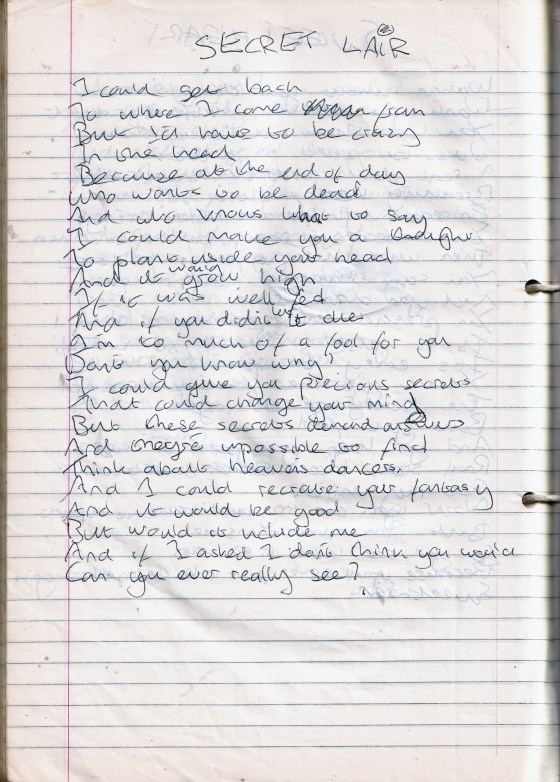 SECRET LAIR
I could get back
To where I come from
But I'd have to be crazy
In the head
Because at the end of day
Who wants to be dead
And who knows what to say
I could make you a
To plant inside your head
And it would grow high
If it was well fed
And if you didn't let it die
I'm to much of a fool for you
Don't you know why?
I could give you precious secrets
That could change your mind
But these secrets demand answers
And they're impossible to find
Think about heaven's dancers,
And I could recreate your fantasy
And it would be good
But would it include me
And if I asked I don't think you would
Can you ever really see?